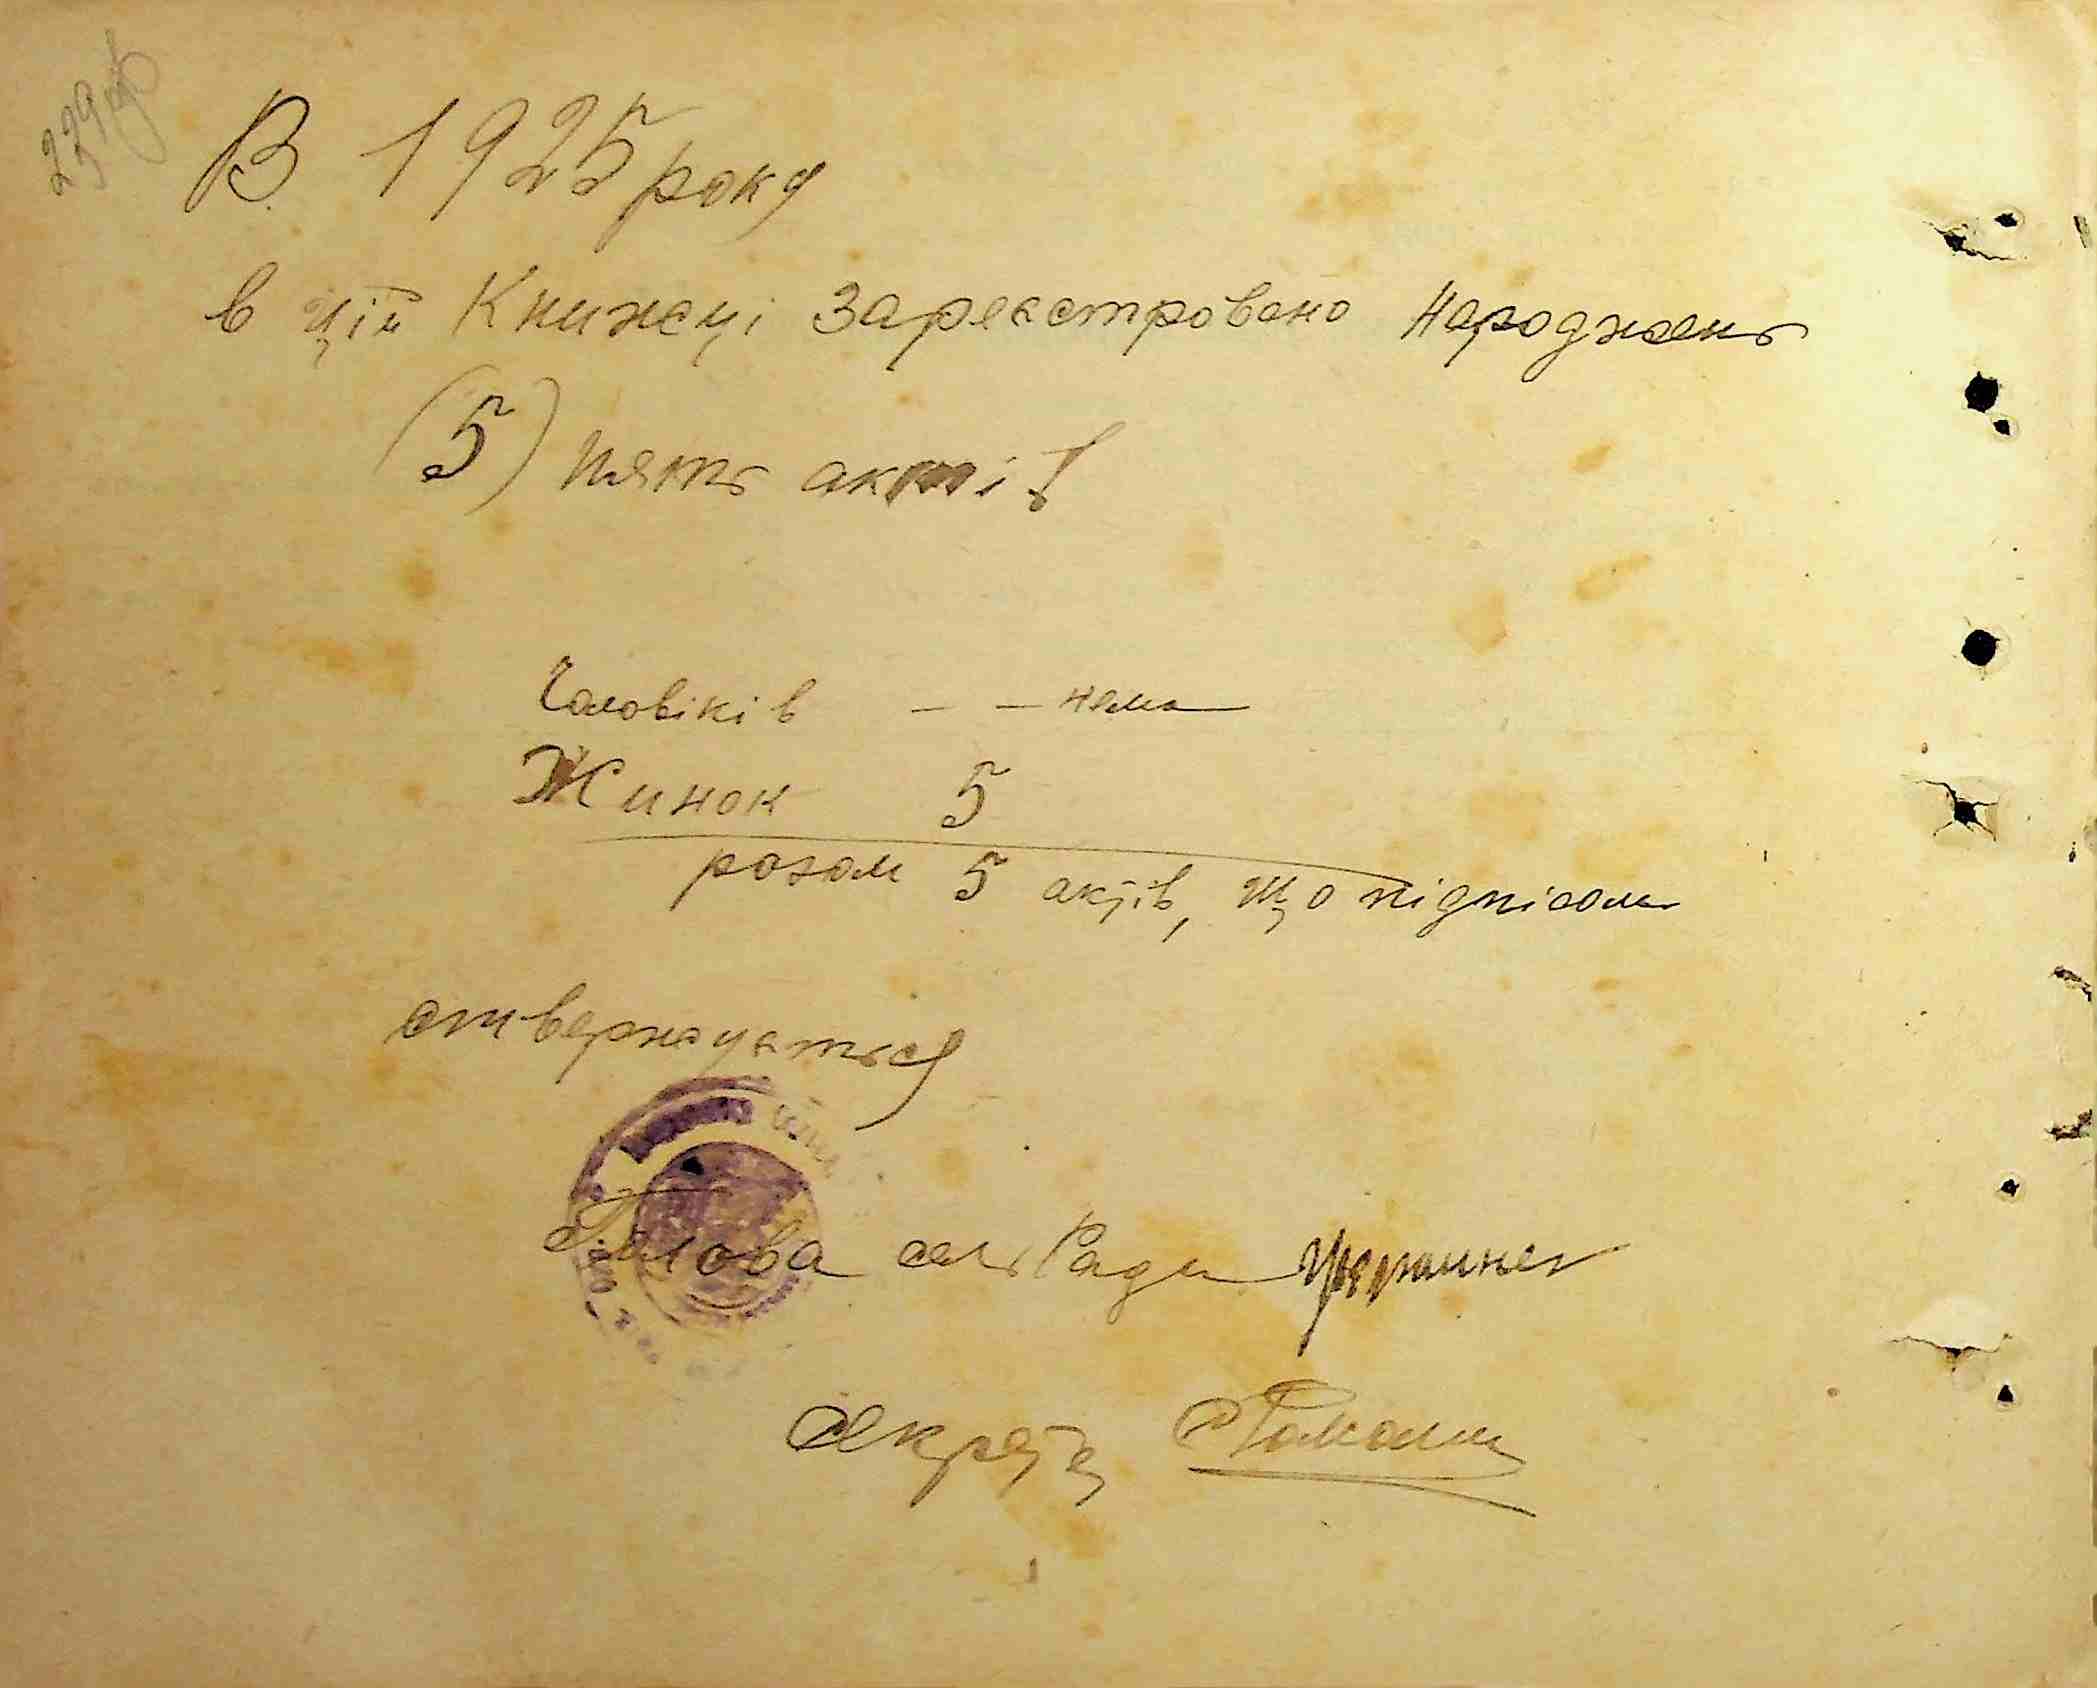 В 1925 року
в цій Книжеці зареєстровано народжень
(5) пять актів
Чоловіків - - нема
Жинок 5
розом 5 актів, що підпісом
ствержуеться
Голова сельРади
секрет